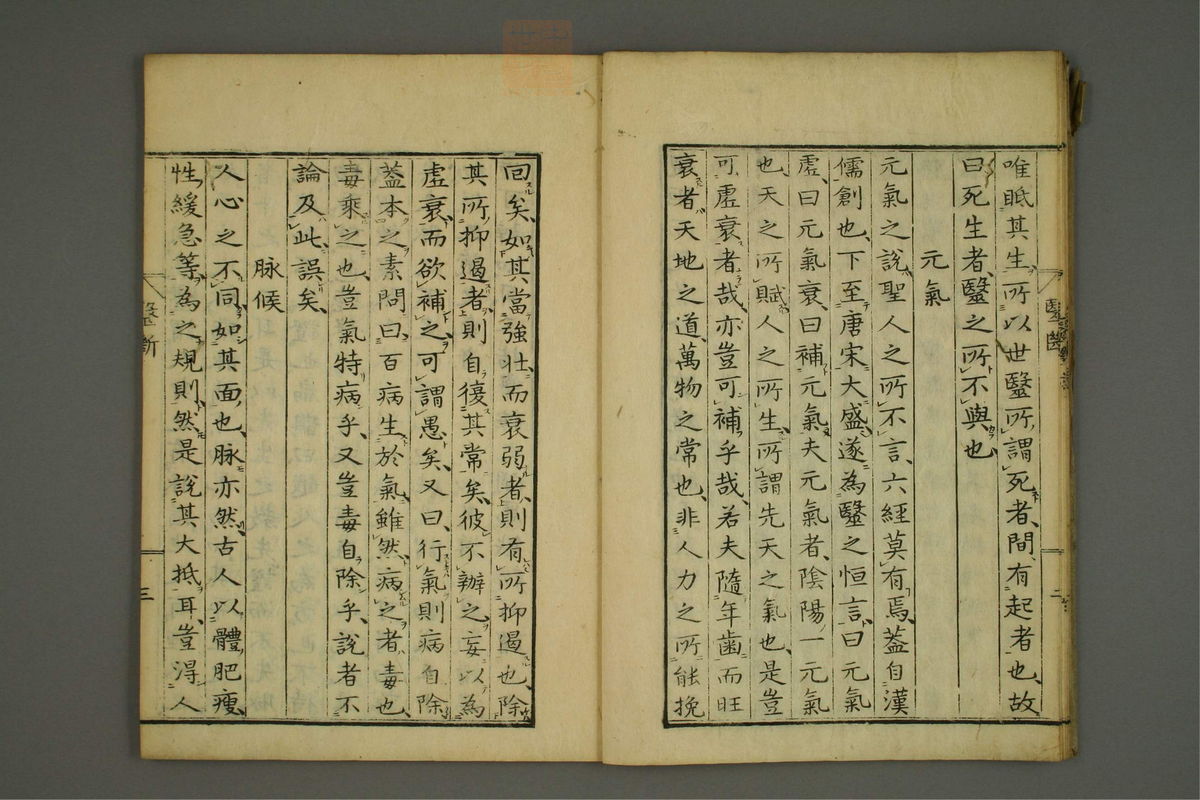 唯眂其生所以世毉所謂死者間有起者也故
曰死生者毉之所不與也
元氣
元氣之說聖人之所不言六經莫有焉葢自漢
儒創也下至唐宋大盛遂為毉之恒言曰元氣
虛曰元氣衰曰補元氣夫元氣者陰陽一元氣
也天之所賦人之所生所謂先天之氣也是豈
可虛衰者哉亦豈可補乎哉若夫隨年歯而旺
衰者天地之道萬物之常也非人力之所能挽
毉斷
二
回矣如其當強壮而衰弱者則有所抑遏也除
其所抑遏者則自復其常矣彼不辦之妄以為
虛衰而欲補之可謂愚矣又曰行氣則病自除
葢本之素問曰百病生於氣雖然病之者毒也
毒乘之也豈氣特病乎又豈毒自除乎說者不
論及此誤矣
脉候
人心之不同如其面也脉亦然古人以體肥瘦
性緩急等為之規則然是說其大抵耳豈淂人
毉斷
三